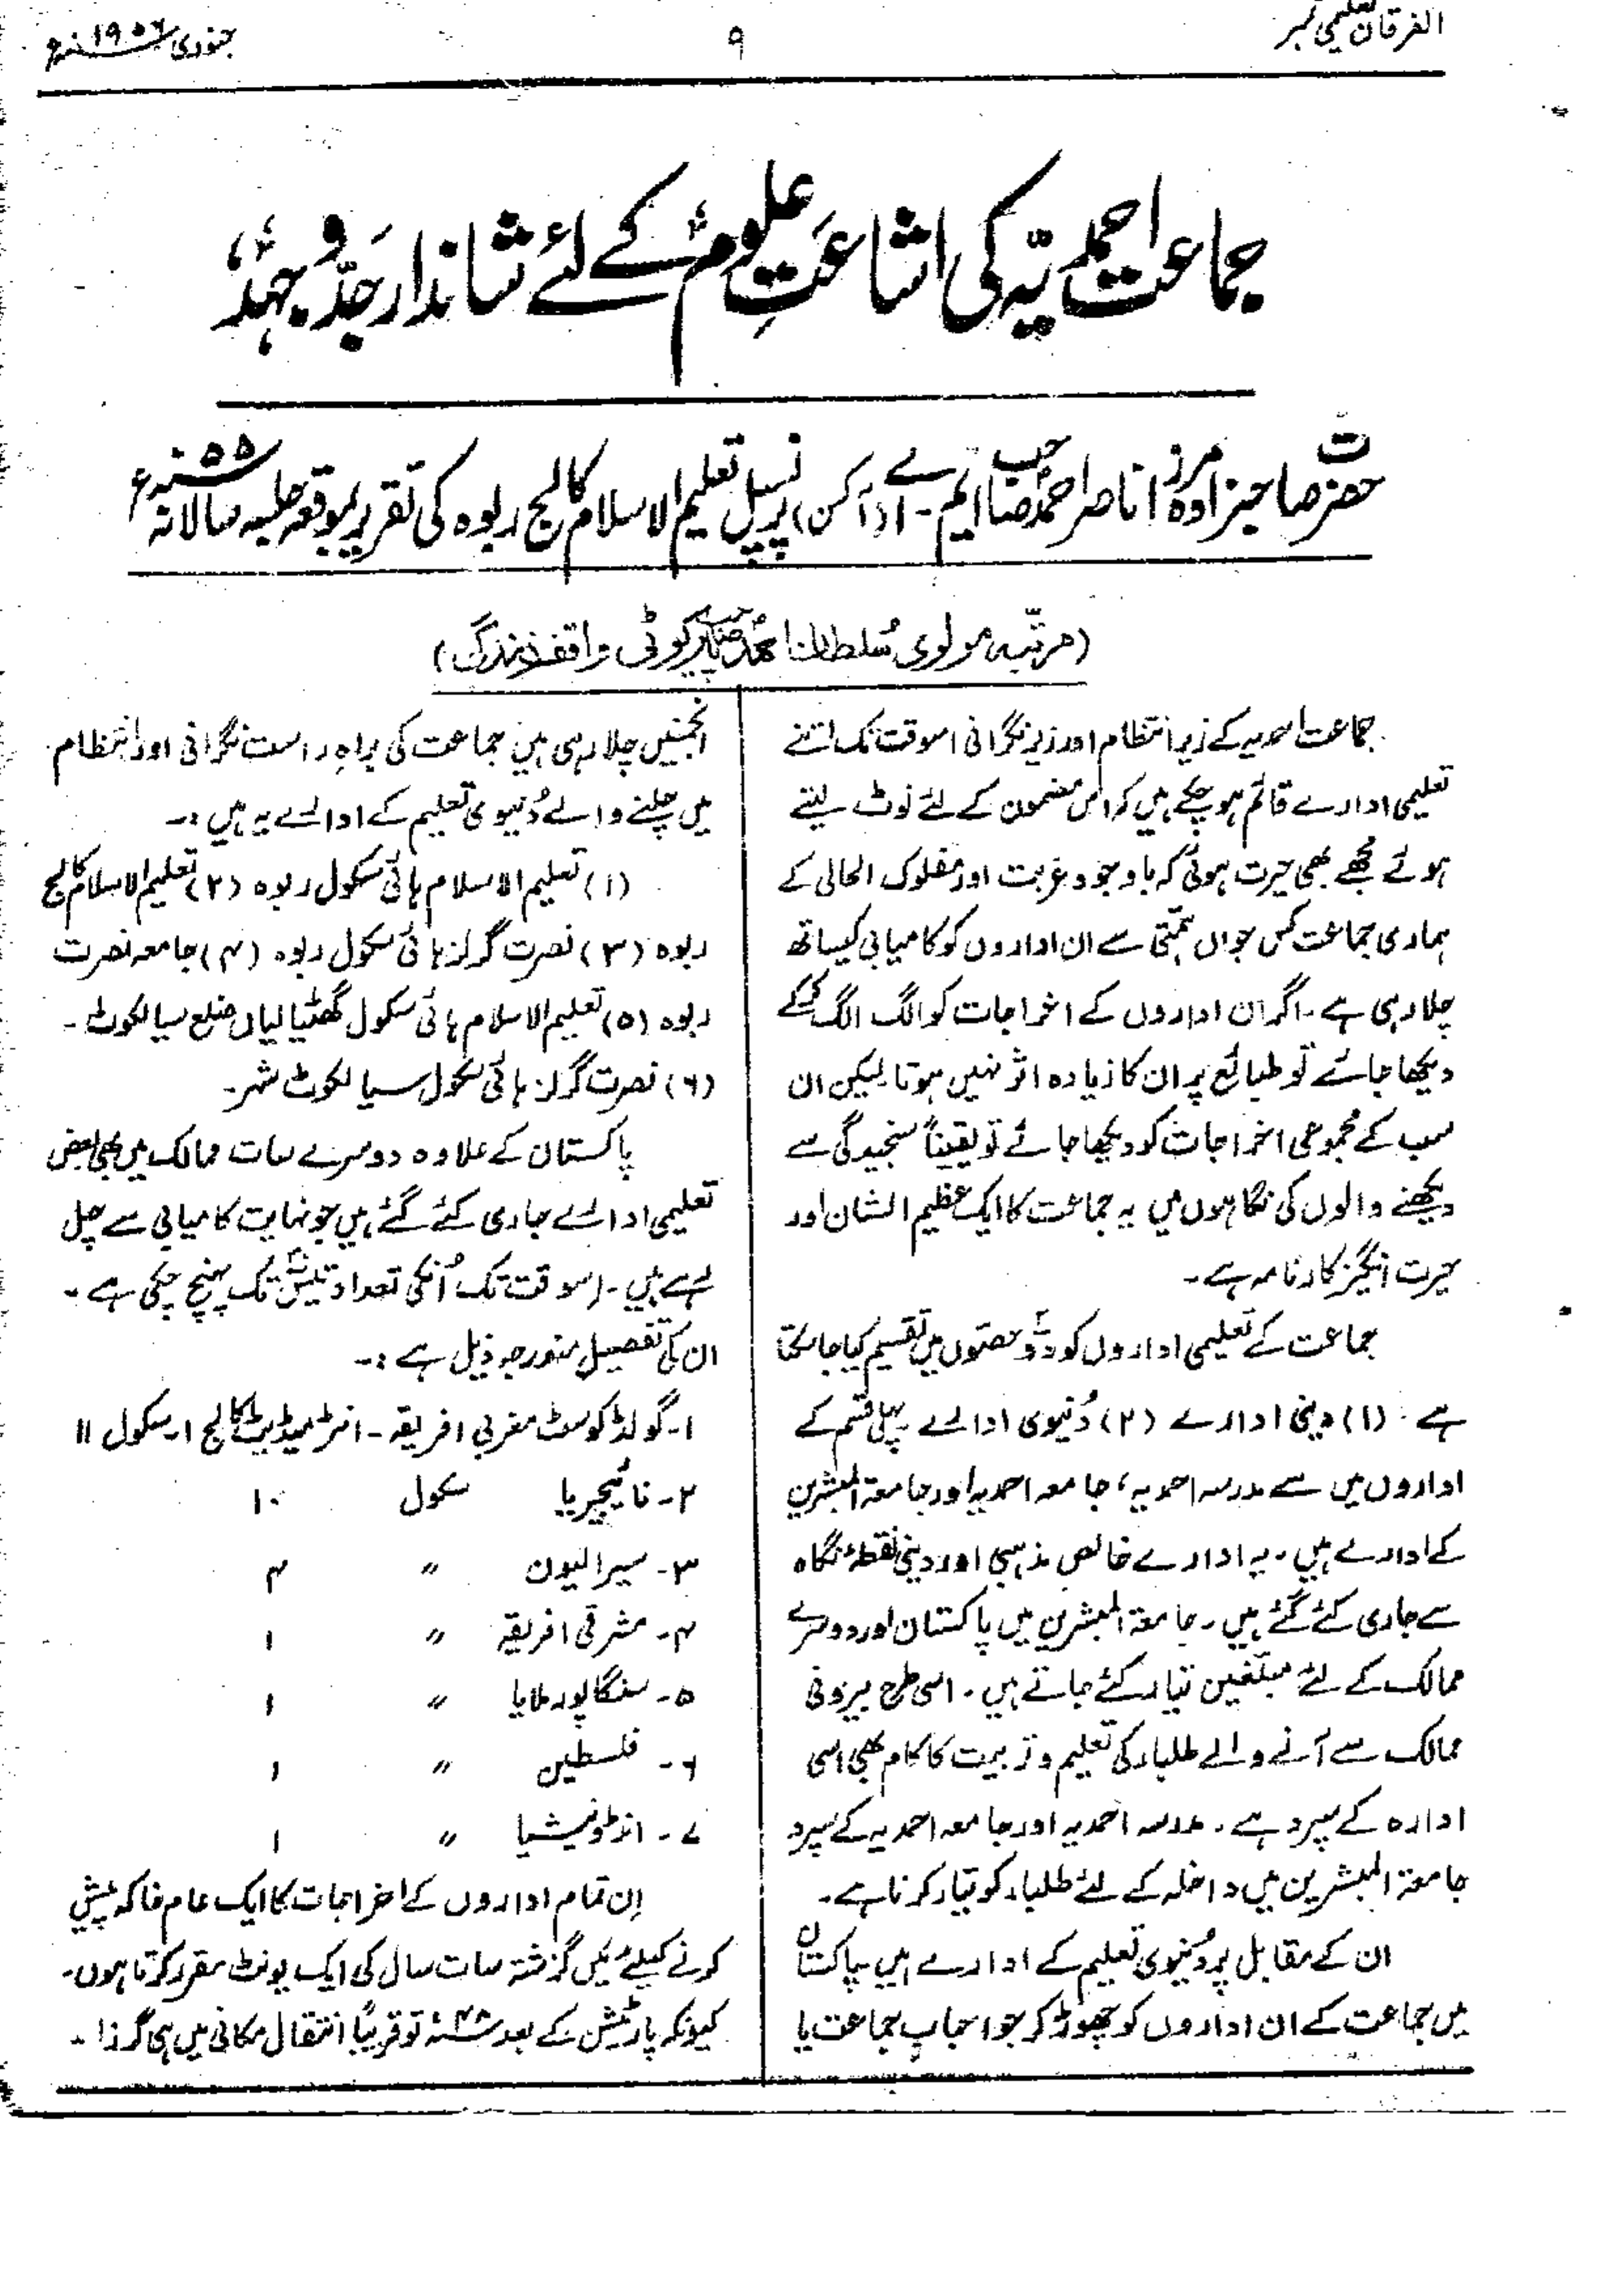 الفرقان تعلیمی نمبر
۹
جنوری ۱۹۵۶ء
جماعت احمدیّہ کی اشاعتِ علوم کے لئے شاندار جدّ و جہد
حضرت صاحبزادہ مرزا ناصر احمد صاحب ایم۔اے (آکسن) پرنسپل تعلیم الاسلام کالج ربوہ کی تقریر بموقعہ جلسہ سالانہ ۵۵ء
(مرتّبہ مولوی سُلطان احمد صاحب پیرکوٹی واقف زندگی)
جماعت احمدیہ کے زیر انتظام اور زیر نگرانی اسوقت تک اتنے
تعلیمی ادارے قائم ہوچکے ہیں کہ اس مضمون کے لئے نوٹ لیتے
ہوئے مجھے بھی حیرت ہوئی کہ باوجود غربت اور مفلوک الحالی کے
ہماری جماعت کس جواں ہمّتی سے ان اداروں کو کامیابی کیساتھ
چلا رہی ہے۔ اگر ان اداروں کے اخراجات کو الگ الگ کرکے
دیکھا جائے تو طبائع پر ان کا زیادہ اثر نہیں ہوتا لیکن ان
سب کے مجموعی اخراجات کو دیکھا جائے تو یقیناً سنجیدگی سے
دیکھنے والوں کی نگاہوں میں یہ جماعت کا ایک عظیم الشان اور
حیرت انگیز کارنامہ ہے۔
جماعت کے تعلیمی اداروں کو دو حصّوں میں تقسیم کیا جاسکتا
ہے۔ (۱) دینی ادارے (۲) دُنیوی ادارے پہلی قسم کے
اداروں میں سے مدرسہ احمدیہ، جامعہ احمدیہ اور جامعۃ المبشرین
کے ادارے ہیں۔ یہ ادارے خالص مذہبی اور دینی نقطۂ نگاہ
سے جاری کئے گئے ہیں۔ جامعۃ المبشرین میں پاکستان اور دوسرے
ممالک کے لئے مبلّغین تیار کئے جاتے ہیں۔ اسی طرح بیرونی
ممالک سے آنے والے طلباء کی تعلیم و تربیت کا کام بھی اسی
ادارہ کے سپرد ہے۔ مدرسہ احمدیہ اور جامعہ احمدیہ کے سپرد
جامعۃ المبشرین میں داخلہ کے لئے طلباء کو تیار کرنا ہے۔
ان کے مقابل پر دُنیوی تعلیم کے ادارے ہیں۔ پاکستان
میں جماعت کے ان اداروں کو چھوڑ کر جو احبابِ جماعت یا
انجمنیں چلا رہی ہیں جماعت کی براہِ راست نگرانی اور انتظام
میں چلنے والے دُنیوی تعلیم کے ادارے یہ ہیں :۔
(۱) تعلیم الاسلام ہائی سکول ربوہ (۲) تعلیم الاسلام کالج
ربوہ (۳) نصرت گرلز ہائی سکول ربوہ (۴) جامعہ نصرت
ربوہ (۵) تعلیم الاسلام ہائی سکول گھٹیالیاں ضلع سیالکوٹ۔
(۶) نصرت گرلز ہائی سکول سیالکوٹ شہر۔
پاکستان کے علاوہ دوسرے سات ممالک میں بھی بعض
تعلیمی ادارے جاری کئے گئے ہیں جو نہایت کامیابی سے چل
رہے ہیں۔ اسوقت تک اُنکی تعداد تیس تک پہنچ چکی ہے۔
ان کی تفصیل مندرجہ ذیل ہے :۔
۱۔ گولڈ کوسٹ مغربی افریقہ۔ انٹرمیڈیٹ کالج ۱۔ سکول ۱۱
۲۔ نائیجیریا سکول ۱۰
۳۔ سیرالیون 〃 ۴
۴۔ مشرقی افریقہ 〃 ۱
۵۔ سنگاپور ملایا 〃 ۱
۶۔ فلسطین 〃 ۱
۷۔ انڈونیشیا 〃 ۱
اِن تمام اداروں کے اخراجات کا ایک عام خاکہ پیش
کرنے کیلئے میں گزشتہ سات سال کی ایک یونٹ مقرر کرتا ہوں۔
کیونکہ پارٹیشن کے بعد ۴۸ء تو قریباً انتقال مکانی میں ہی گزرا۔